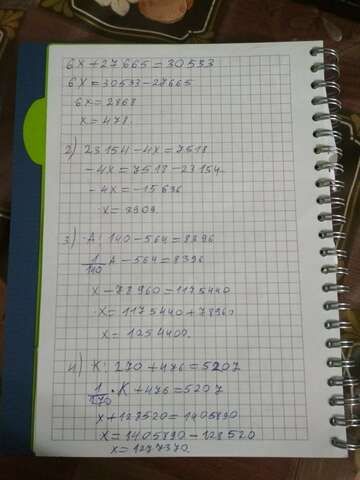 6x + 27665 = 30533
6x = 30533 - 27665
6x = 2868
x = 478.
2) 23154 - 4x = 7518
- 4x = 7518 - 23154.
- 4x = - 15636
x = 3909.
3) A : 140 - 564 = 8396
1/140 A - 564 = 8396
x - 78960 = 1175440
x = 1175440 + 78960
x = 1254400.
4) K : 270 + 476 = 5207
1/270 · K + 476 = 5207
x + 128520 = 1405890
x = 1405890 - 128520
x = 1277370.